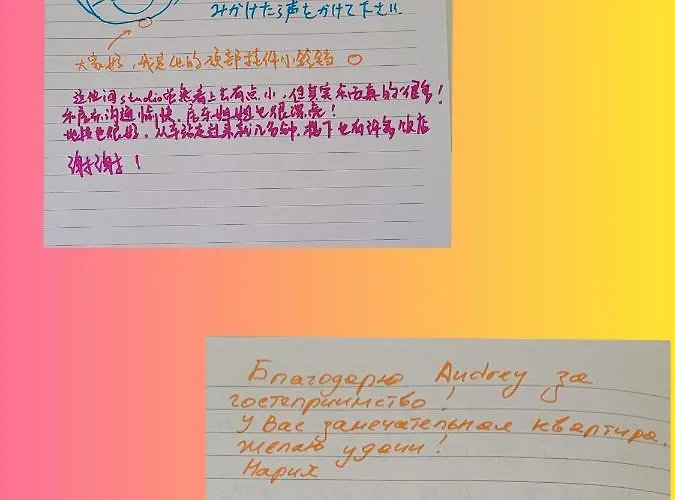 みかけたら声をかけて下さい
大家好,我是他的顶部挂件小铃铛
这他间studio虽然看上去有点小,但其实东西真的很多!
和房东沟通愉快,房东姐姐也很漂亮!
地段也很好,从车站走过来就几分钟,楼下也有许多饭店
谢谢!
Благодарю Audrey за
гостеприимство!
У Вас замечательная квартира.
желаю удачи!